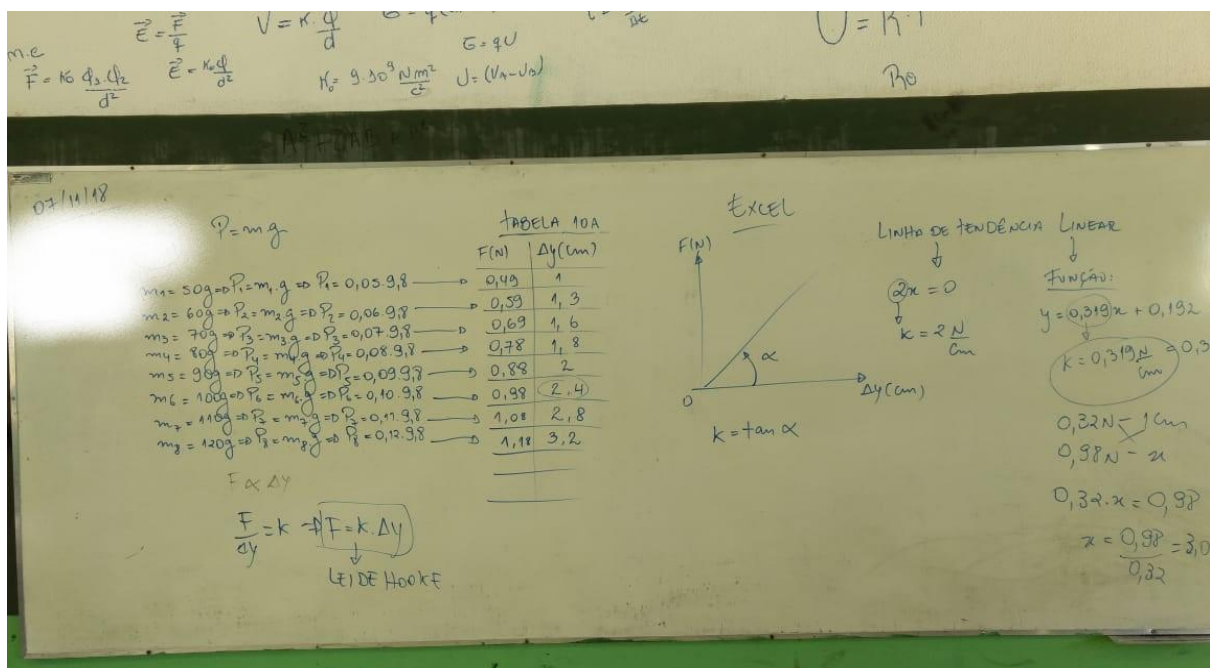 m.e
E = F/q
V = K.φ/d
E = qU
F = K0 φ1.φ2/d²
E = K0φ/d²
K0 = 9.10⁹ Nm²/c²
U = (VA-VB)
U = R.I
R0
07/11/18
P = mg
m1 = 50g => P1 = m1.g => P1 = 0,05.9,8
m2 = 60g => P2 = m2g => P2 = 0,06.9,8
m3 = 70g => P3 = m3g => P3 = 0,07.9,8
m4 = 80g => P4 = m4g => P4 = 0,08.9,8
m5 = 90g => P5 = m5g => P5 = 0,09.9,8
m6 = 100g => P6 = m6.g => P6 = 0,10.9,8
m7 = 110g => P7 = m7g => P7 = 0,11.9,8
m8 = 120g => P8 = m8g => P8 = 0,12.9,8
F ∝ ΔY
F/Δy = k => F = k.Δy
LEI DE HOOKE
TABELA 10A
F(N) Δy(cm)
0,49 1
0,59 1,3
0,69 1,6
0,78 1,8
0,88 2
0,98 2,4
1,08 2,8
1,18 3,2
EXCEL
F(N)
α
0
Δy(cm)
k = tan α
LINHA DE TENDÊNCIA LINEAR
2x = 0
k = 2 N/cm
FUNÇÃO:
y = 0,319x + 0,192
k = 0,319 N/cm = 0,3
0,32N - 1cm
0,98N - x
0,32.x = 0,98
x = 0,98/0,32 = 3,0